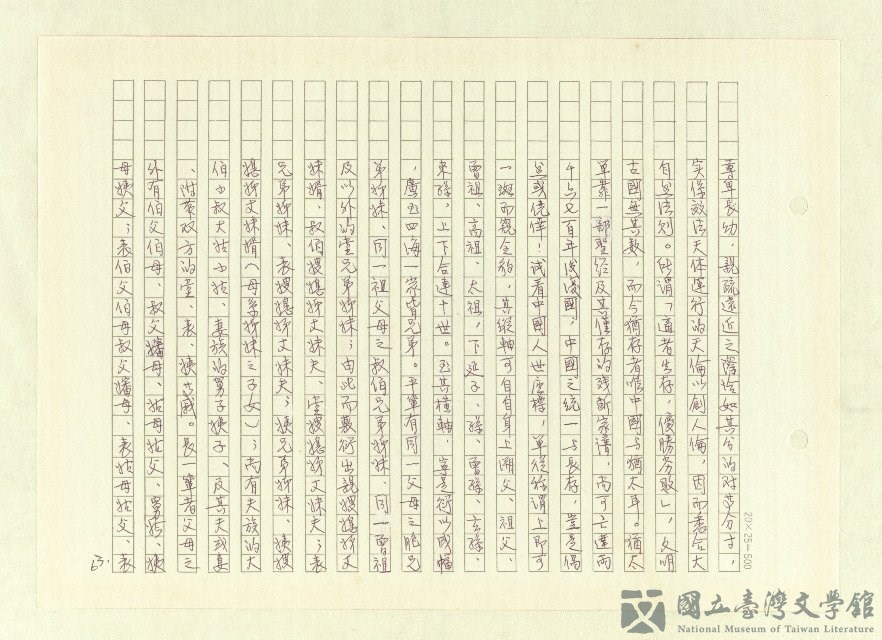 尊卑長幼，親疏遠近之際恰如其分的對等分寸，
实係效法天体運行的天倫以創人倫，因而悉合大
自然法則。所謂「適者生存，優勝劣敗」，文明
古國無其數，而今猶存者惟中國与猶太耳。猶太
單靠一部聖經及其僅存的殘斷家譜，尚可亡達兩
千六七百年後復國；中國之統一与長存，豈是偶
然或僥倖！試看中國人世座標，單從稱謂上即可
一斑而窺全豹，其縱軸可自自身上溯父、祖父、
曾祖、高祖、太祖，下延子、孫、曾孫、玄孫、
來孫，上下合連十世。至其橫軸，寧是衍以成幅
，廣至四海一家皆兄弟。平輩有同一父母之胞兄
弟姊妹、同一祖父母之叔伯兄弟姊妹、同一曾祖
及以外的堂兄弟姊妹；由此而蕃衍出親嫂媳姊丈
妹婿、叔伯嫂媳姊丈妹夫、堂嫂媳姊丈妹夫；表
兄弟姊妹、表嫂媳姊丈妹夫；姨兄弟姊妹、姨嫂
媳姊丈妹婿（母系姊妹之子女）；尚有夫族的大
伯小叔大姑小姑、妻族的舅子姨子、及其夫或妻
、附帶双方的堂、表、姨女戚。長一輩者父母之
外有伯父伯母、叔父嬸母、姑母姑父、舅父、姨
母姨父；表伯父伯母叔父嬸母、表姑母姑父、表
63.
20×25=500
國立臺灣文學館
National Museum of Taiwan Literature